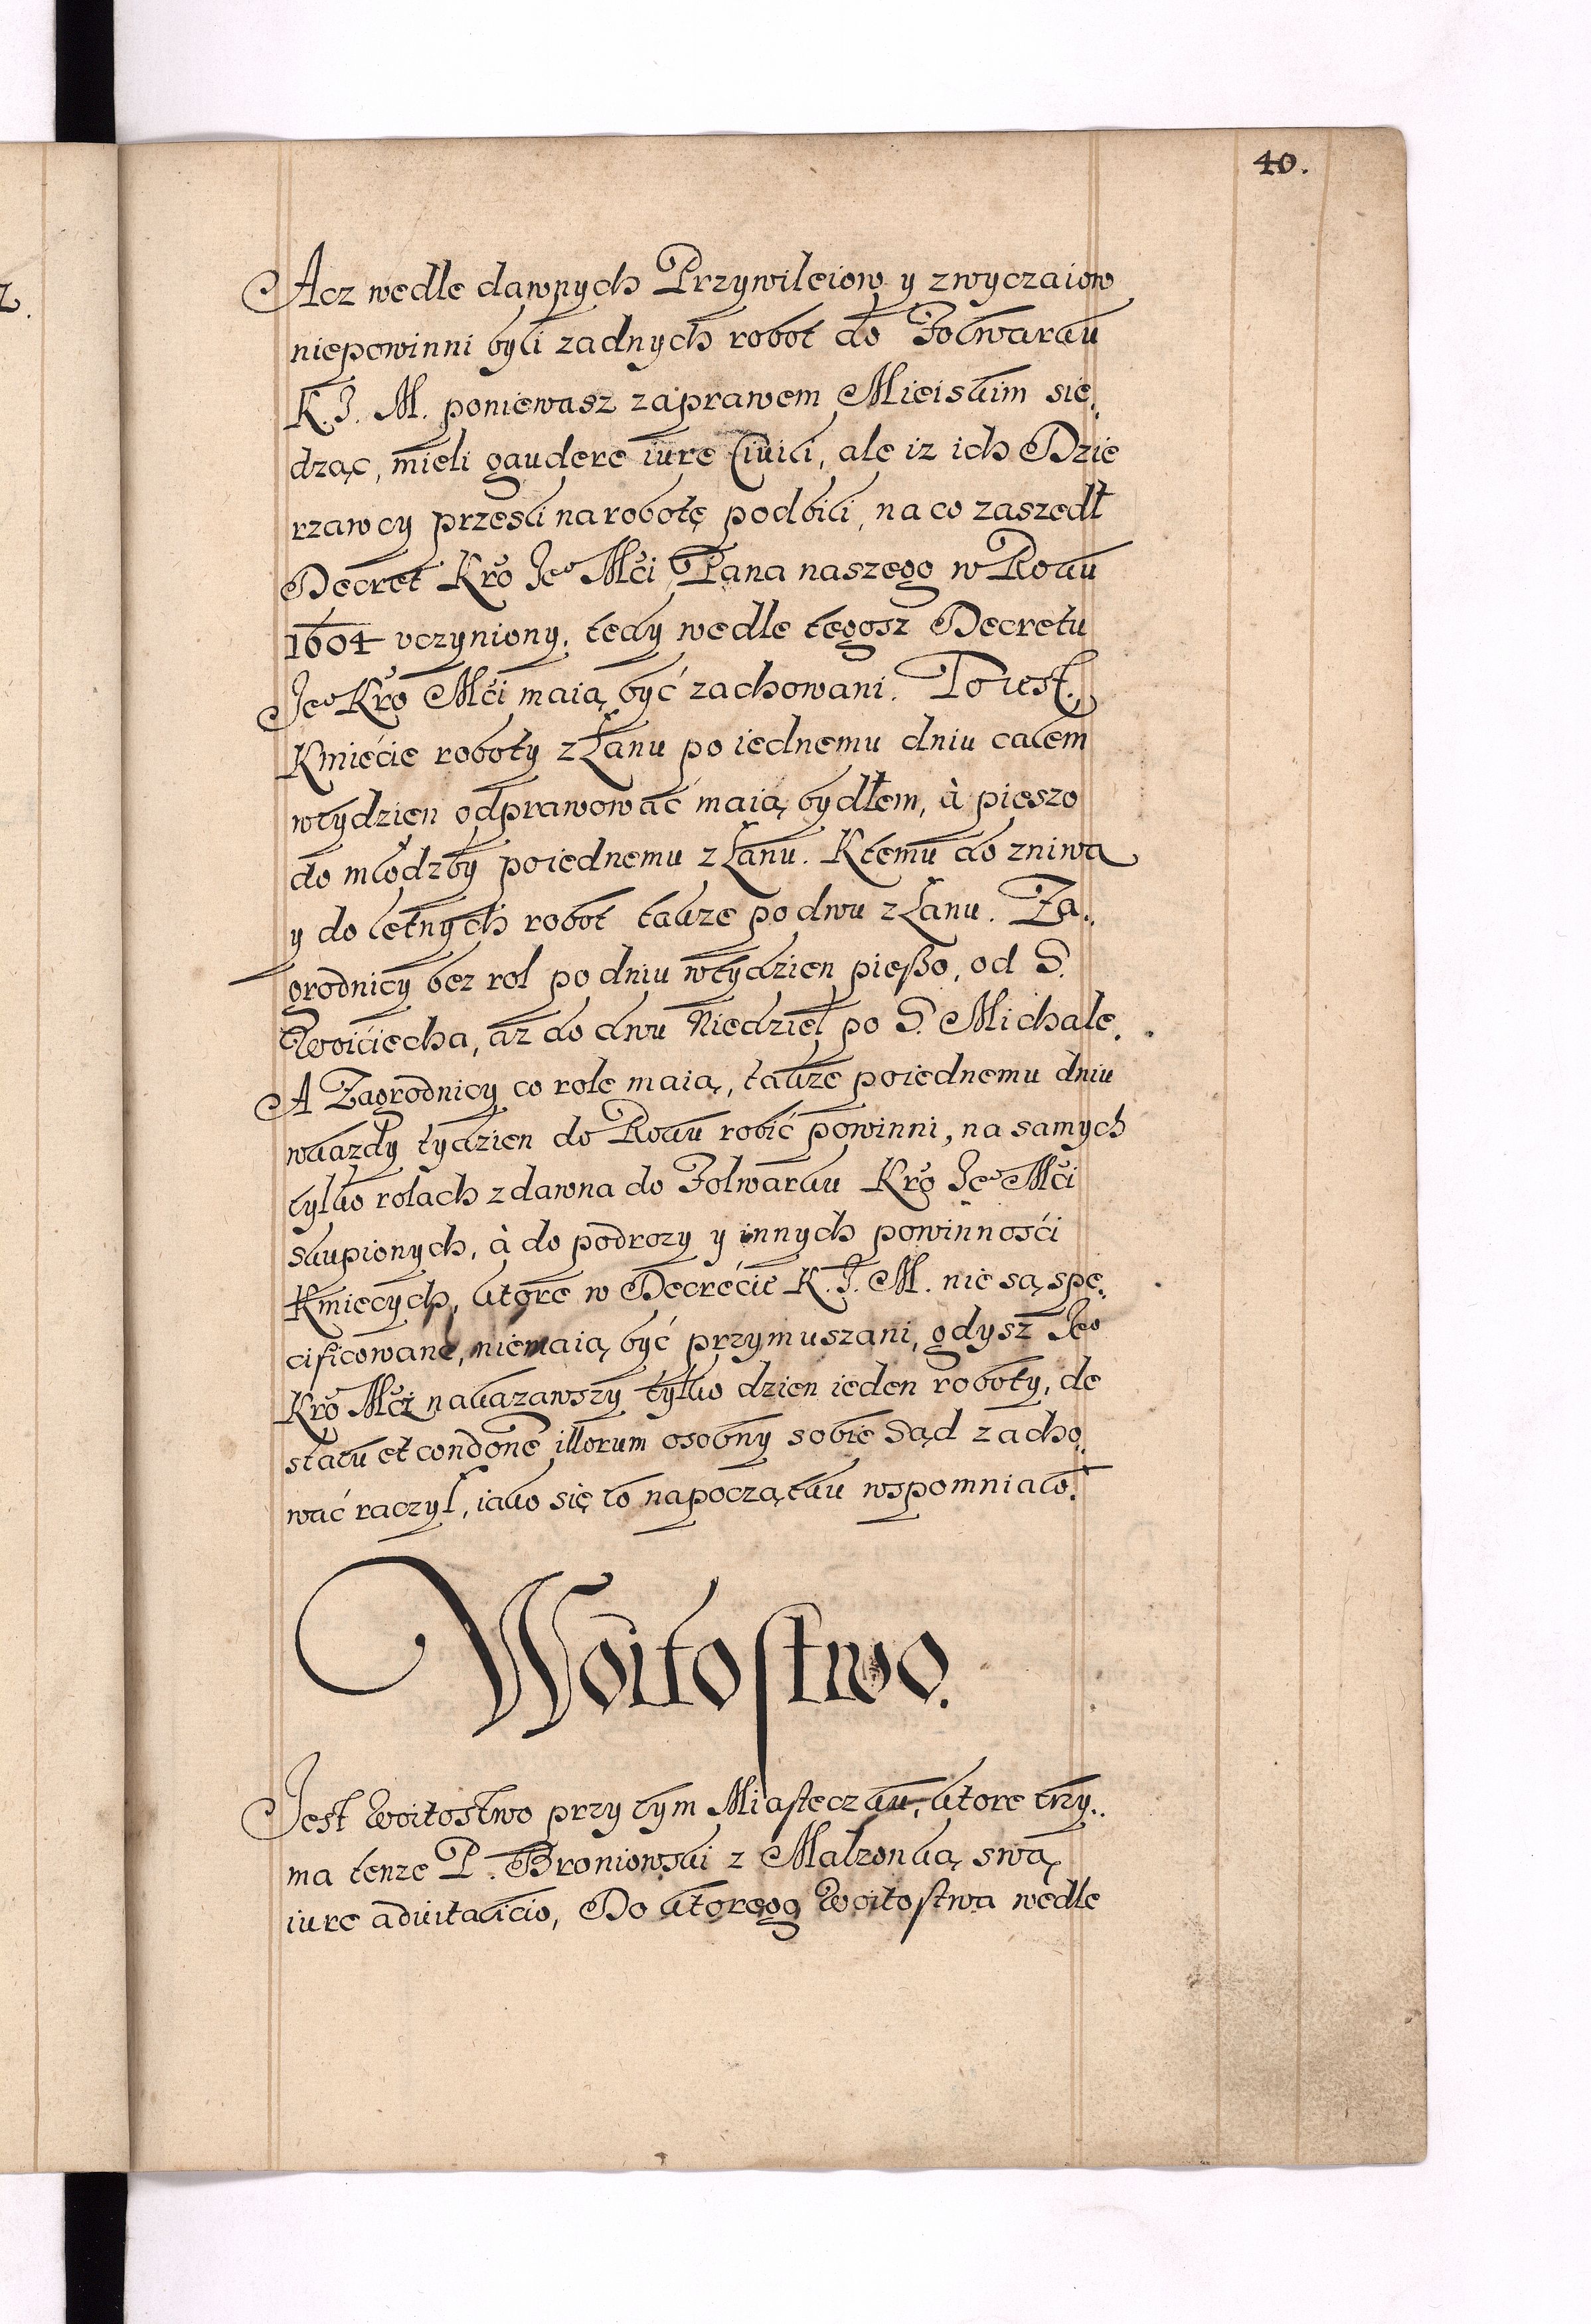 40.
Acz wedle dawnych Przywileiow y zwyczaiow
niepowinni byli zadnych robot do Folwarku
K. J. M. poniewasz zaprawem Mieiskim sie,
dząc, mieli gaudere iure Ciuili, ale iz ich Dzie
rzawcy przesli narobotę podbili, na co zaszedł
Decret Kro Jeo Mci Pana naszego w Roku
1604 vczyniony. tedy wedle tegosz Decretu
Jeo Kro Mci maią być zachowani. To iest.
Kmiećie roboty z Łanu po iednemu dniu calem
wtydzien odprawować maią bydłem, à pieszo
do młodzby poiednemu z Łanu. Ktemu do zniwa
y do letnych robot takze po dwu z Łanu. Za..
grodnicy bez rol po dniu wtydzien pießo, od S.
Woićiecha, az do dwu Niedziel po S. Michale.
A Zagrodnicy co role maią, takze poiednemu dniu
wkazdy tydzien do Roku robić powinni, na samych
tylko rolach zdawna do Folwarku Kro Jeo Mci
skupionych, à do podrozy y innych powinnośći
Kmiecych, ktore w Decrećie K. J. M. nie są spe,
cificowane, niemaią być przymuszani, gdysz Jeo
Kro Mci nakazawszy tylko dzien ieden roboty, de
statu et condone illorum osobny sobie Sąd zacho,
wać raczyl, iako się to napoczątku wspomnialo.
Woitostwo.
Jest Woitostwo przy tym Miasteczku, ktore trzy..
ma tenze P. Broniowski z Malzonką swą
iure aduitalicio, Do ktorego Woitostwa wedle